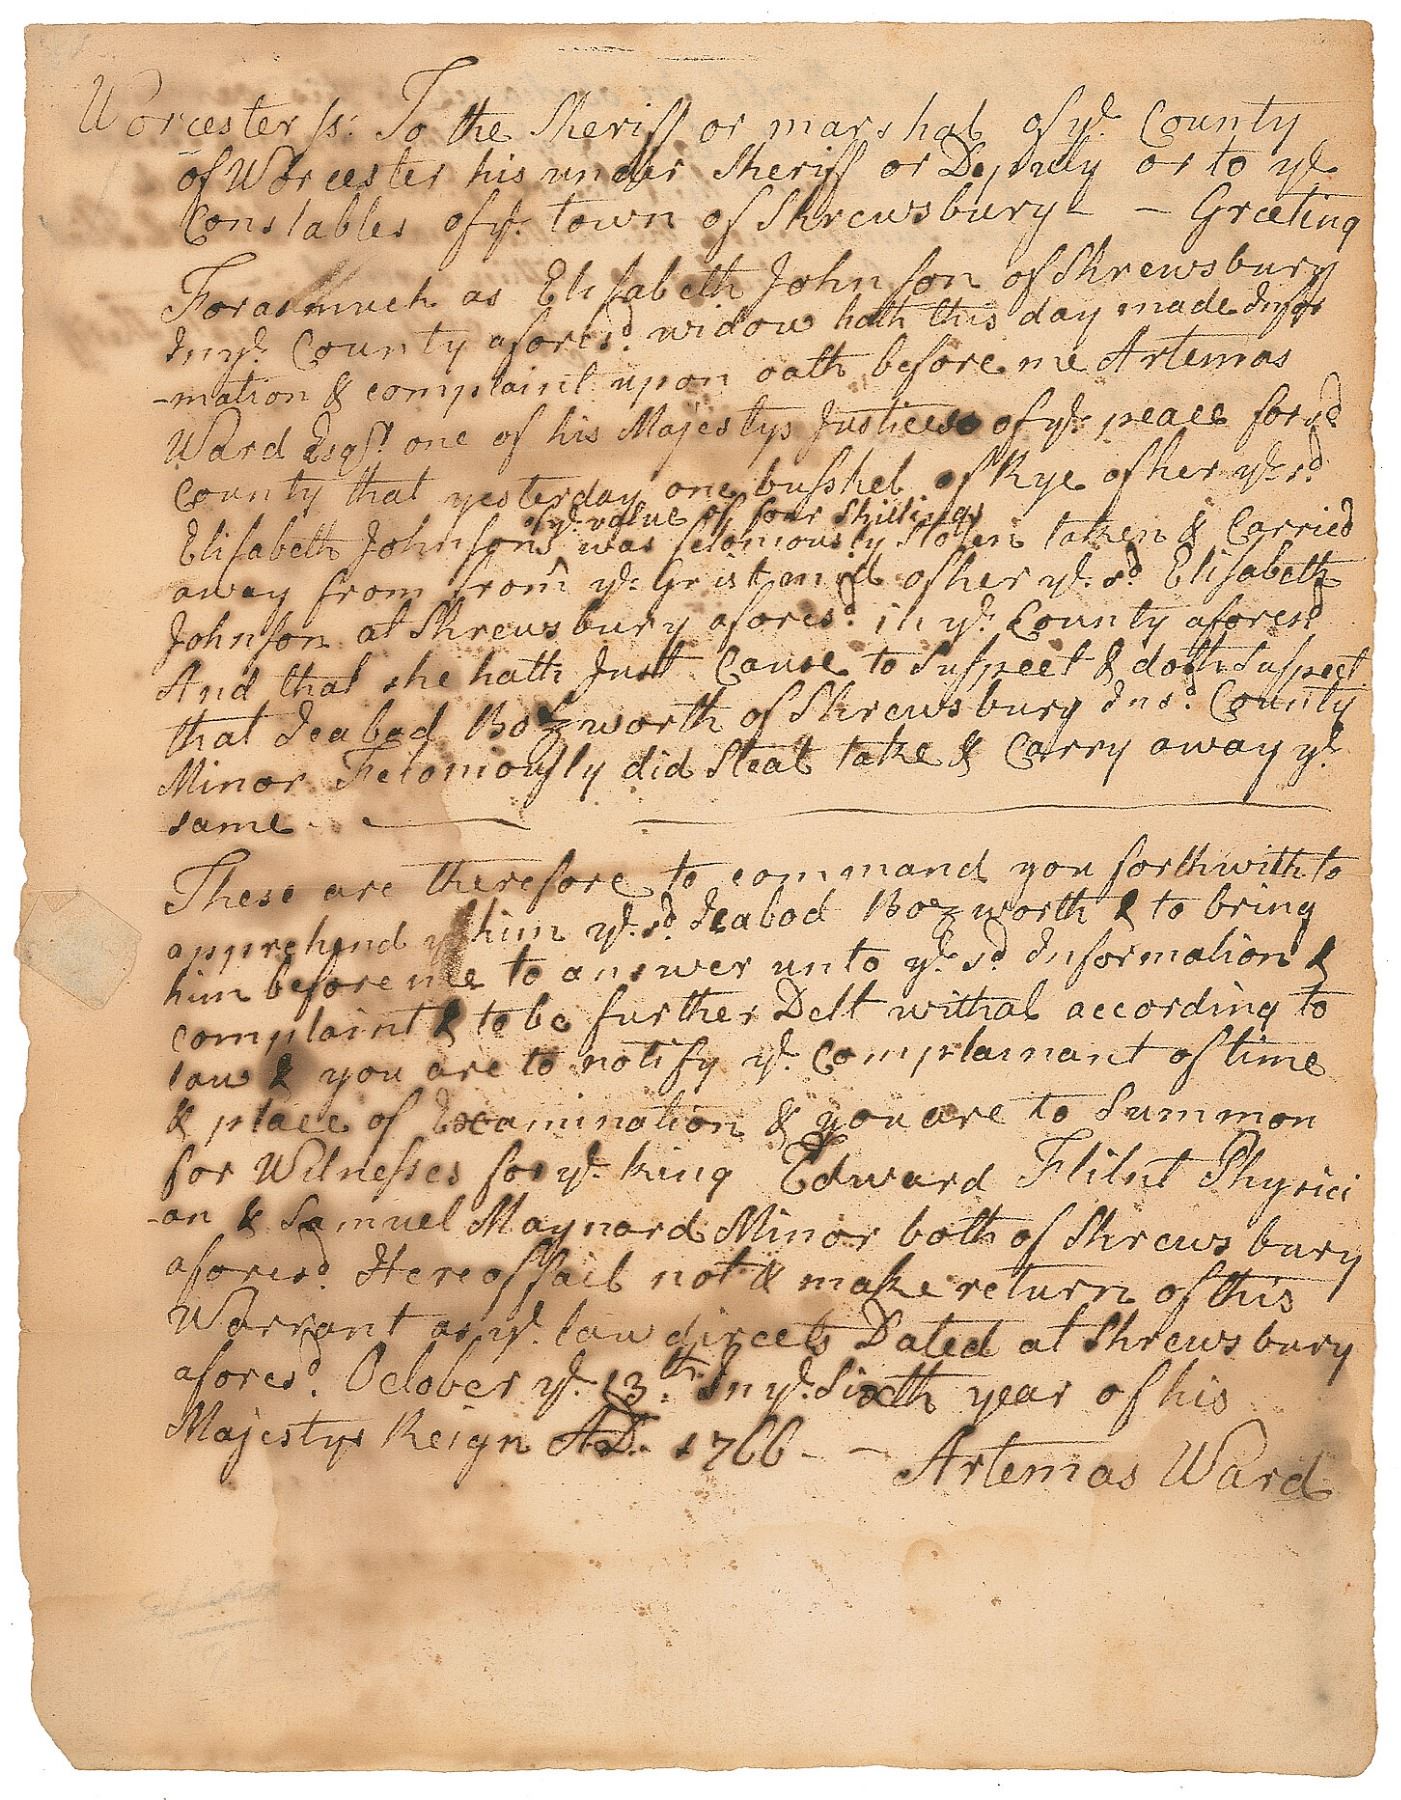 Worcester ss: To the Sheriff or marshal of ye County
of Worcester his under Sheriff or Deputy or to ye
Constables of ye town of Shrewsbury - - Greeting
Forasmuch as Elisabeth Johnson of Shrewsbury
In ye County aforesd widow hath this day made Infor
-mation & complaint upon oath before me Artemas
Ward Esqr one of his Majestys Justices of ye peace for sd
County that yesterday one busshel of Rye of her ye sd
of ye value of four Shillings
Elisabeth Johnsons was feloniously Stolen taken & Carried
away from from ye Grist mill of her ye sd Elisabeth
Johnson at Shrewsbury aforesd in ye County aforesd
And that she hath Just Cause to Suspect & doth Suspect
that Icabod Bozworth of Shrewsbury In sd County
Minor Feloniously did Steal take & Carry away ye
same
These are therefore to command you forthwith to
apprehend him ye sd Icabod Bozworth & to bring
him before me to answer unto ye sd Information &
complaint & to be further Delt withal according to
law & you are to notify ye Complainant of time
& place of Examination & you are to Summon
for Witnesses for ye King Edward Flint Physici
-an & Samuel Maynard Minor both of Shrewsbury
aforesd. Hereof fail not & make return of this
Warrant as ye law directs Dated at Shrewsbury
aforesd. October ye 13th In ye Sixth year of his
Majestys Reign AD. 1766 - - Artemas Ward